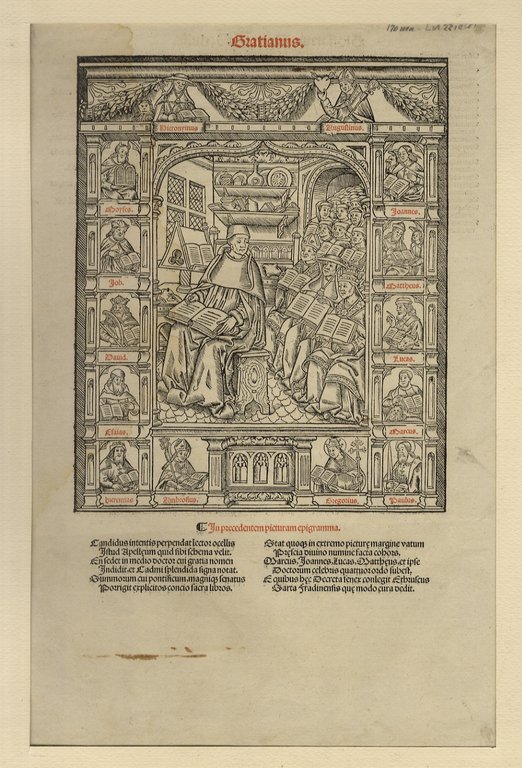 Gratianus.
Hieronymus
Augustinus.
Moyses.
Joannes.
Job.
Mattheus.
Dauid.
Lucas.
Esaias.
Marcus.
Hieremias
Ambrosius.
Gregorius.
Paulus.
¶ In precedentem picturam epigramma.
Candidus intentis perpendat lector ocellis
Istud Apelleum quid sibi schema velit.
En sedet in medio doctor cui gratia nomen
Indidit, et Cadmi splendida signa notat.
Summorum cui pontificum, magnięs senatus
Porrigit explicitos concio sacra libros.
Stat quoqꝫ in extremo picturę margine vatum
Pręscia diuino numine facta cohors.
Marcus, Joannes, Lucas, Mattheus, et ipse
Doctorum celebris quattuor ordo subest,
E quibus hęc Decreta senex conlegit Ethruscus
Sarta Fradinensis quę modo cura dedit.